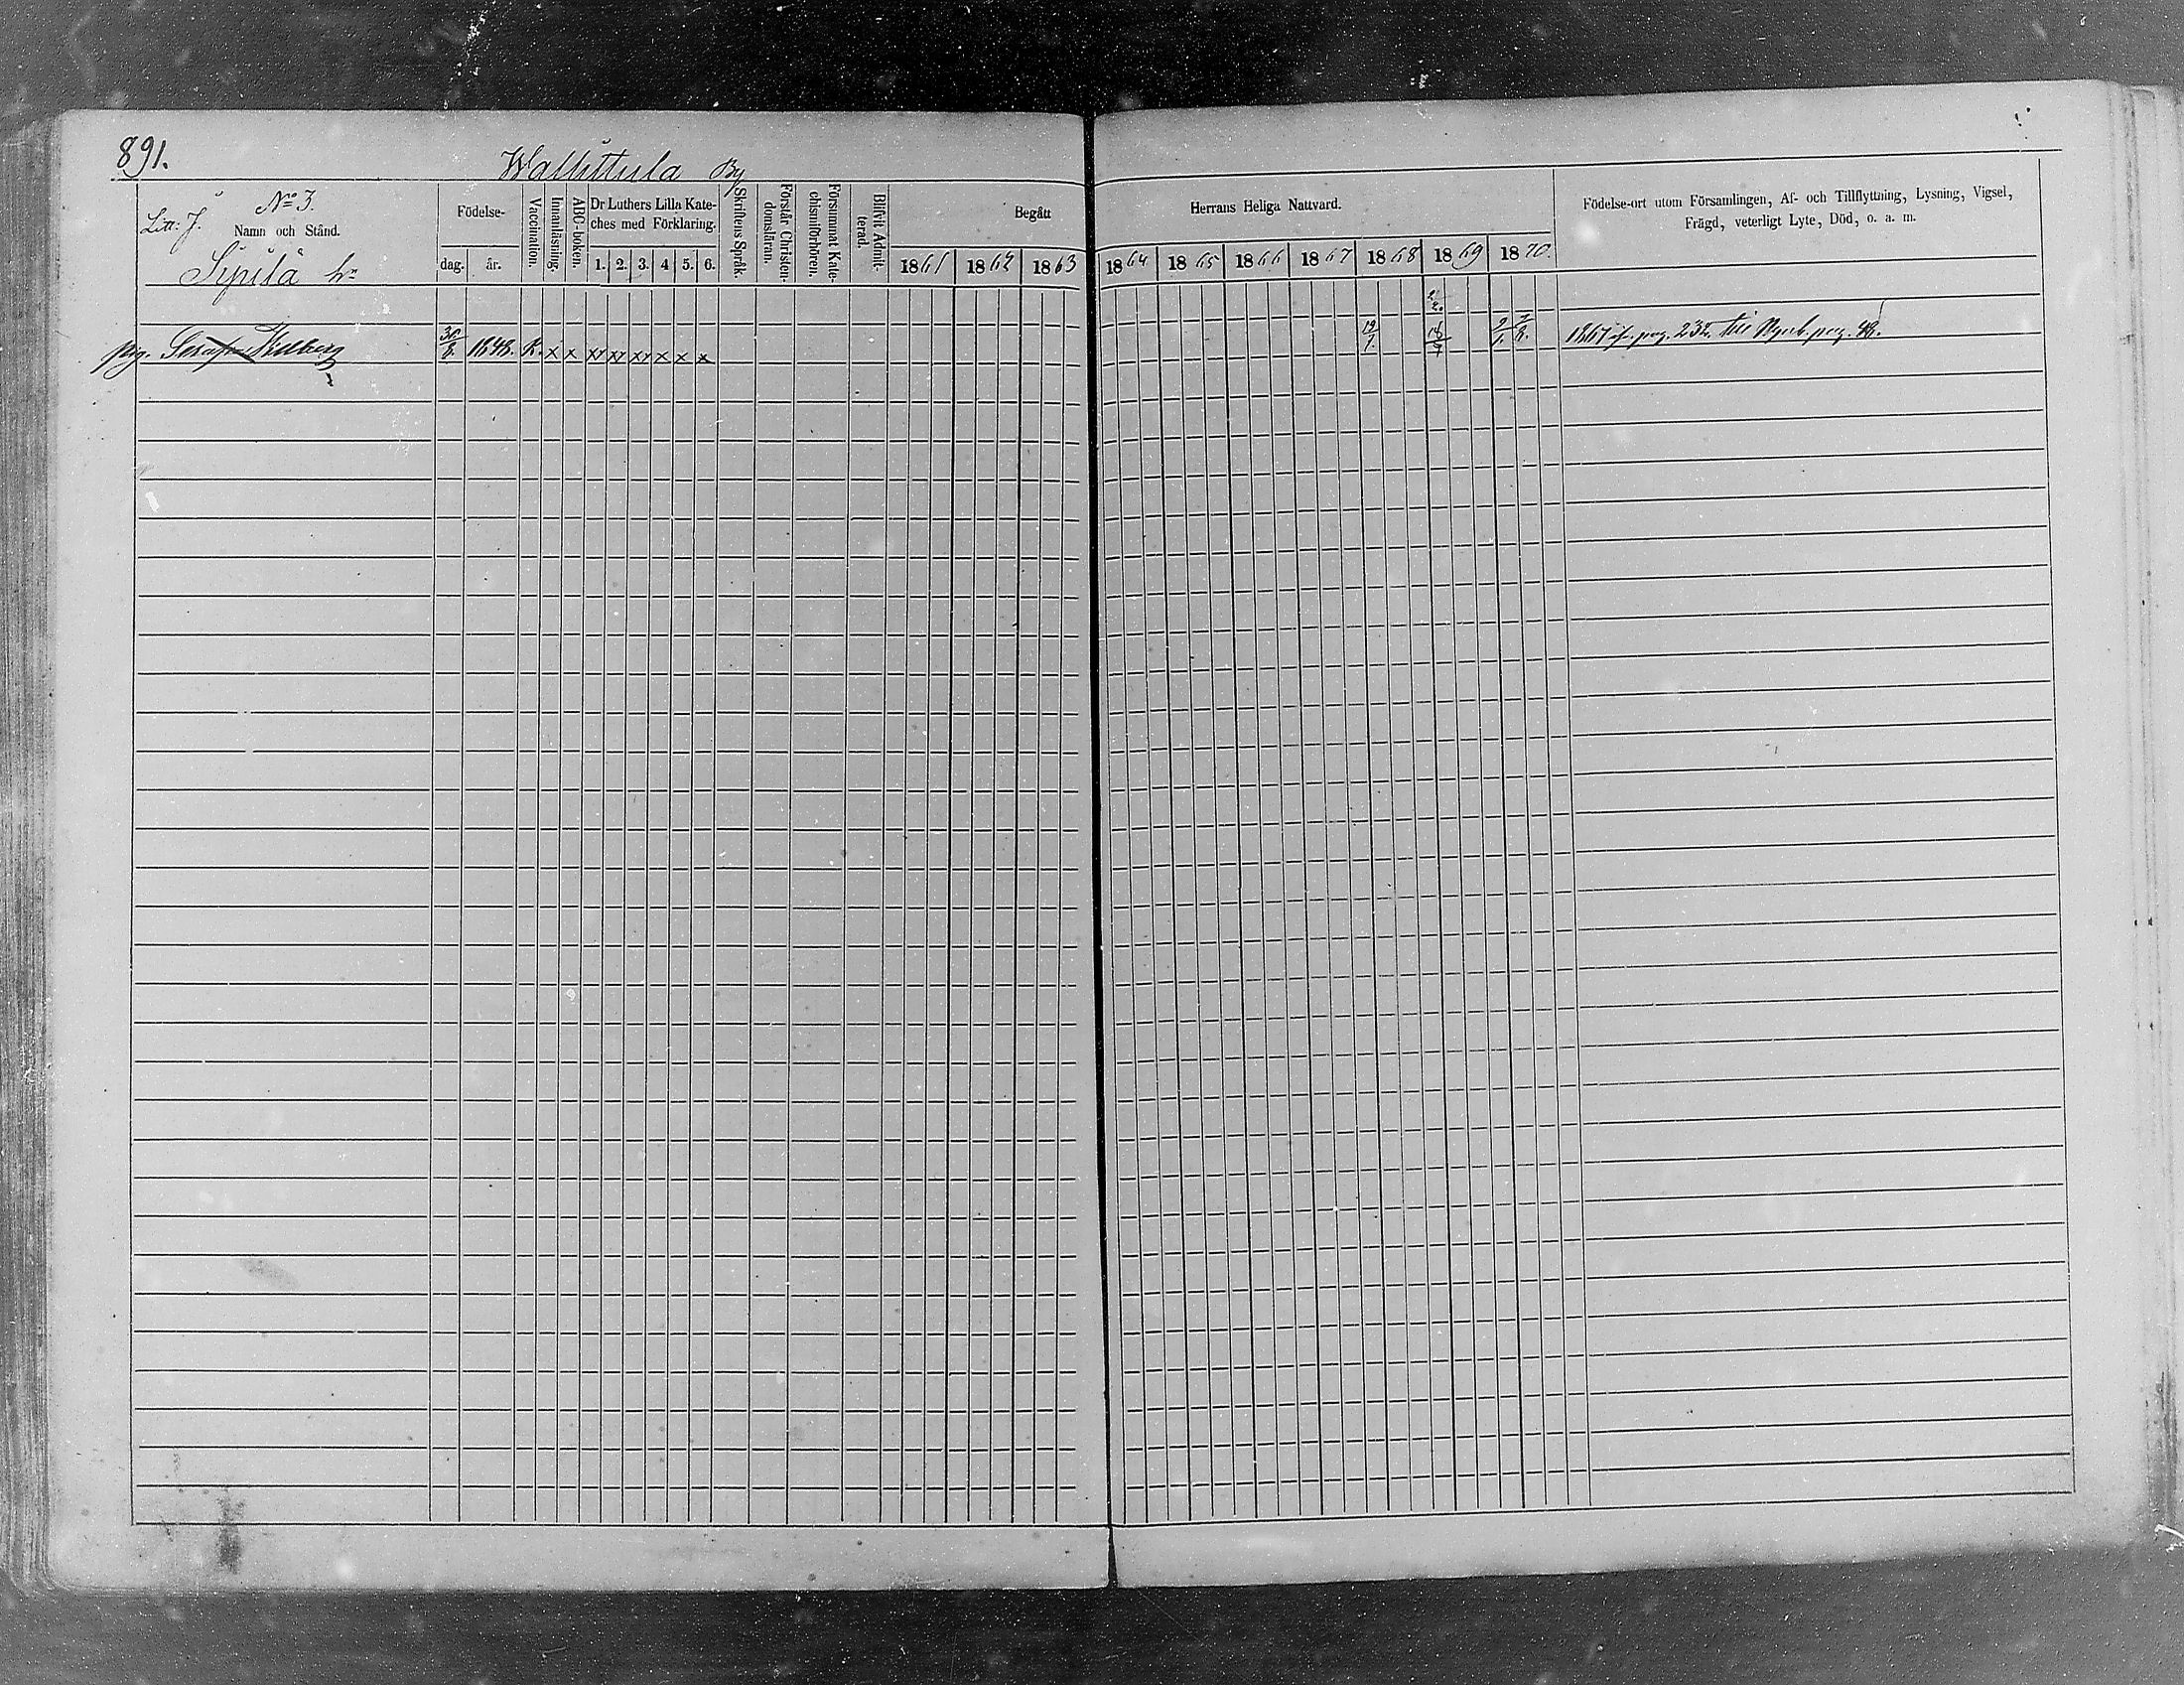 891.
Wallittula By
Litt: J. N:o 3.
Namn och Stånd.
Sipilä hn
Födelse-
dag. år.
Vaccination.
Innanläsning.
ABC-boken.
Dr Luthers Lilla Kate-
ches med Förklaring.
1. 2. 3. 4 5. 6.
Skriftens Språk.
Förstår Christen-
domsläran.
Försummat Kate-
chismiförhören.
Blifvit Admit-
terad.
Begått
1861 1862 1863
Herrans Heliga Nattvard.
1864 1865 1866 1867 1868 1869 1870.
Födelse-ort utom Församlingen, Af- och Tillflyttning, Lysning, Vigsel,
Frägd, veterligt Lyte, Död, o. a. m.
pig. Serafina 1848. R. x x xx xx xx x x x 19/1 2/1 1867 fr. pag. 232. till pag. 48.